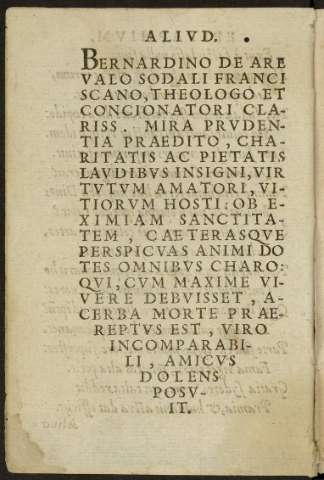 ALIVD.
BERNARDINO DE ARE
VALO SODALI FRANCI
SCANO, THEOLOGO ET
CONCIONATORI CLA-
RISS. MIRA PRVDEN-
TIA PRAEDITO, CHA-
RITATIS AC PIETATIS
LAVDIBVS INSIGNI, VIR
TVTVM AMATORI, VI-
TIORVM HOSTI: OB E-
XIMIAM SANCTITA-
TEM, CAETERASQVE
PERSPICVAS ANIMI DO
TES OMNIBVS CHARO:
QVI, CVM MAXIME VI-
VERE DEBVISSET, A-
CERBA MORTE PRAE-
REPTVS EST, VIRO
INCOMPARABI-
LI, AMICVS
DOLENS
POSV-
IT.